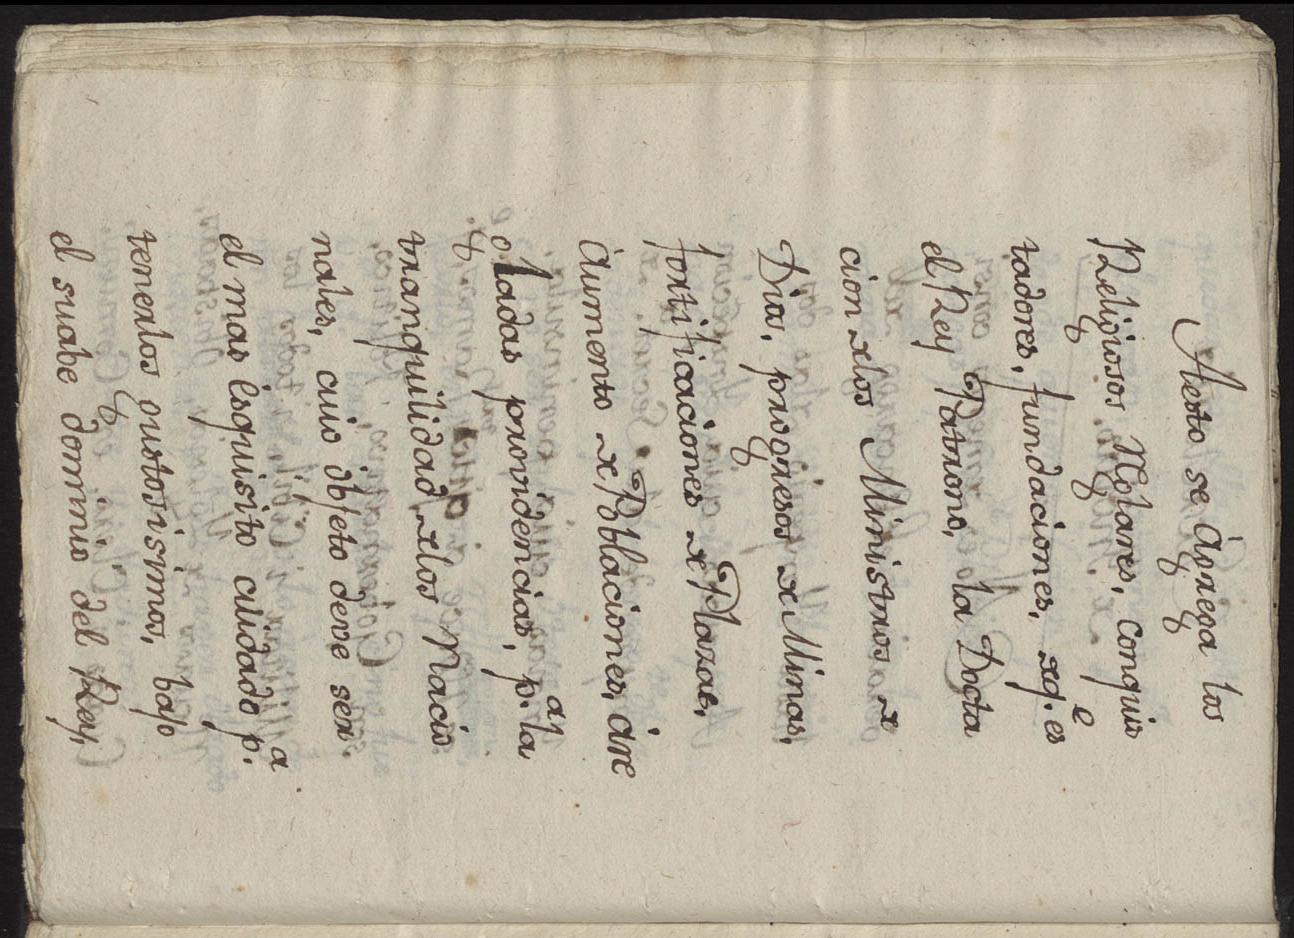 Aesto se Agrega los
Religiosos Molares, conquis
tadores, fundaciones, xq.e es
el Rey Patrono, la Docta
cion xlos Ministros x
Dios, progresos x Minas,
fortificaciones x Plazas,
Aumento x Poblaciones, Are
gladas providencias, p.a la
tranquilidad xlos Nacio
nales, cuio objeto deve ser
el mas Esquisito cuidado, p.a
tenerlos gustosisimos, bajo
el suabe dominio del Rey,